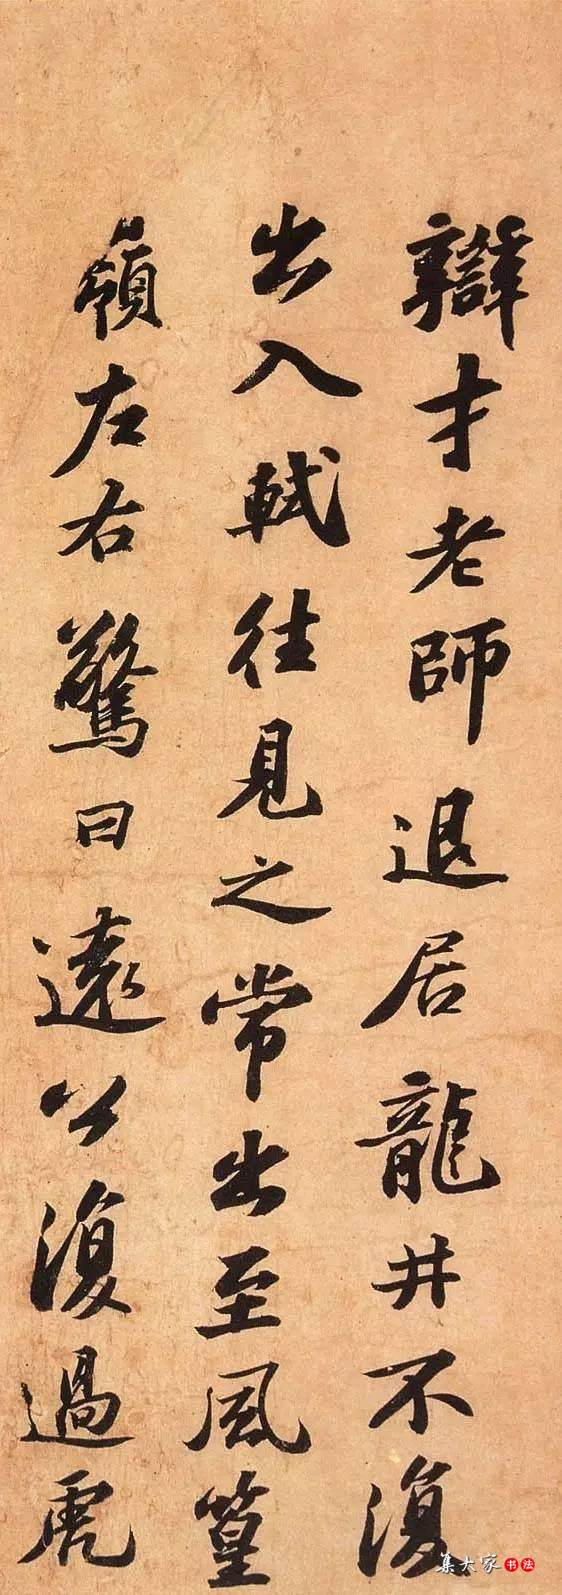 辯才老師退居龍井不復
出入軾往見之常出至風篁
嶺左右驚曰遠公復過虎
集大家书法